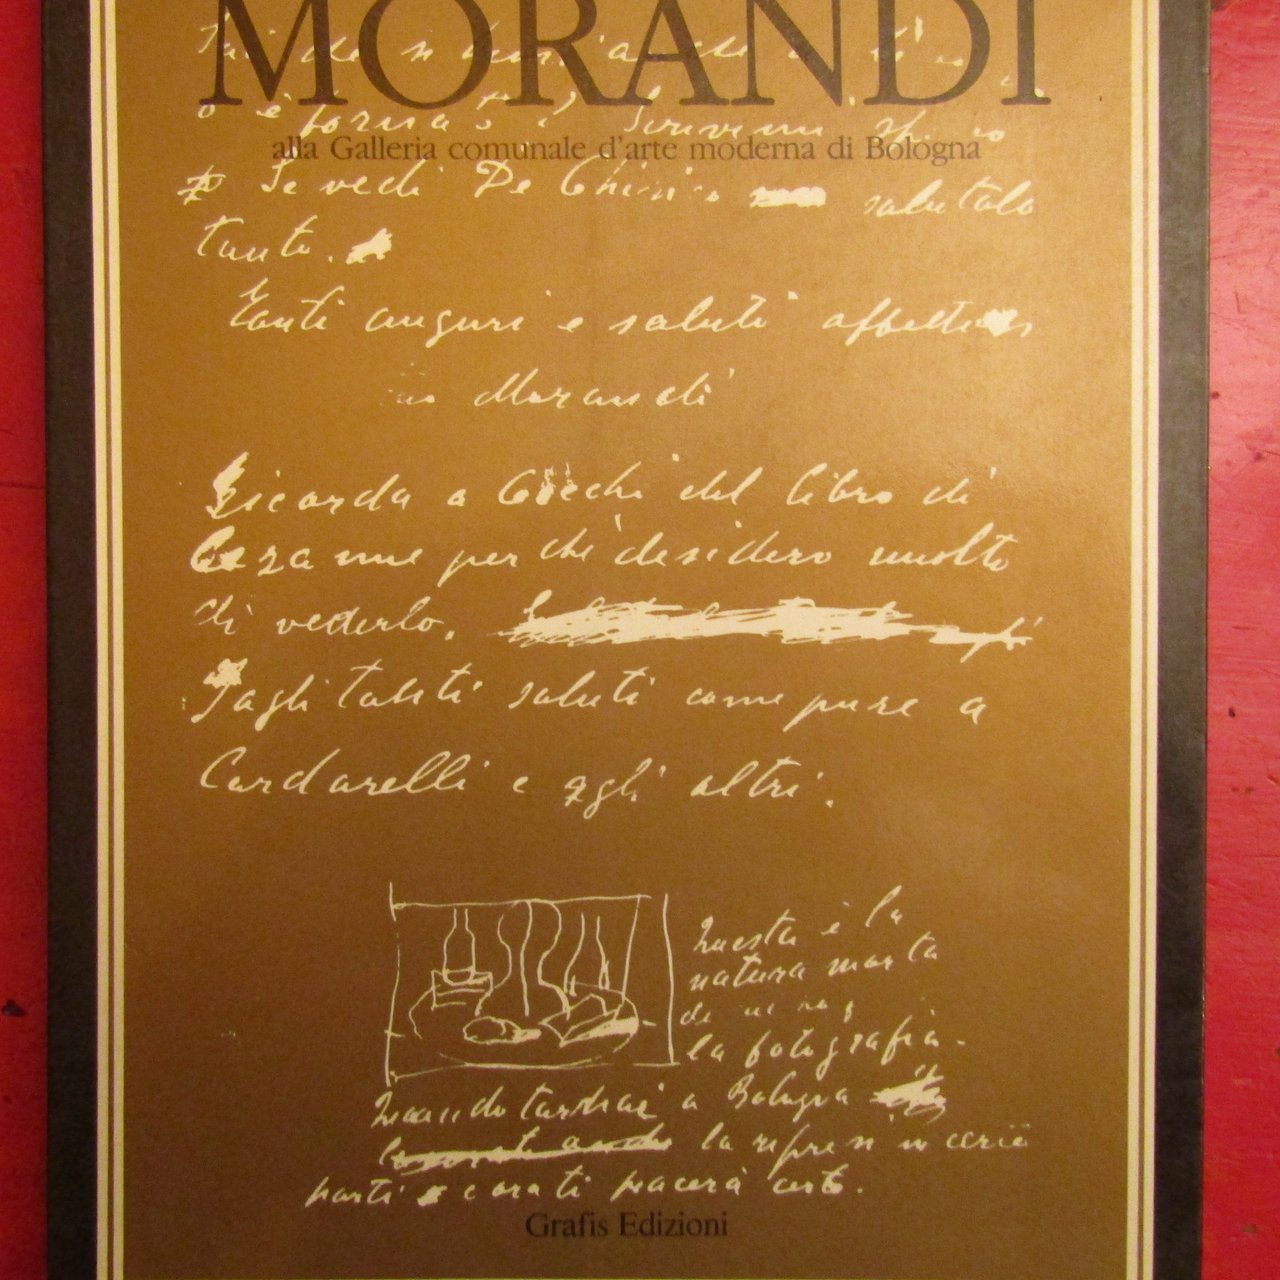 MORANDI
è tornato? Scrivimi
alla Galleria comunale d'arte moderna di Bologna
Se vedi De Chirico salutalo
tanto.
Tanti auguri e saluti affettuosi
Morandi
Ricorda a Cecchi del libro di
Cezanne perchè desidero molto
di vederlo.
Fagli tanti saluti come pure a
Cardarelli e agli altri.
Questa è la
natura morta
di cui
la fotografia.
Quando a Bologna
la ripresi in
parti e ora ti piacerà certo.
Grafis Edizioni